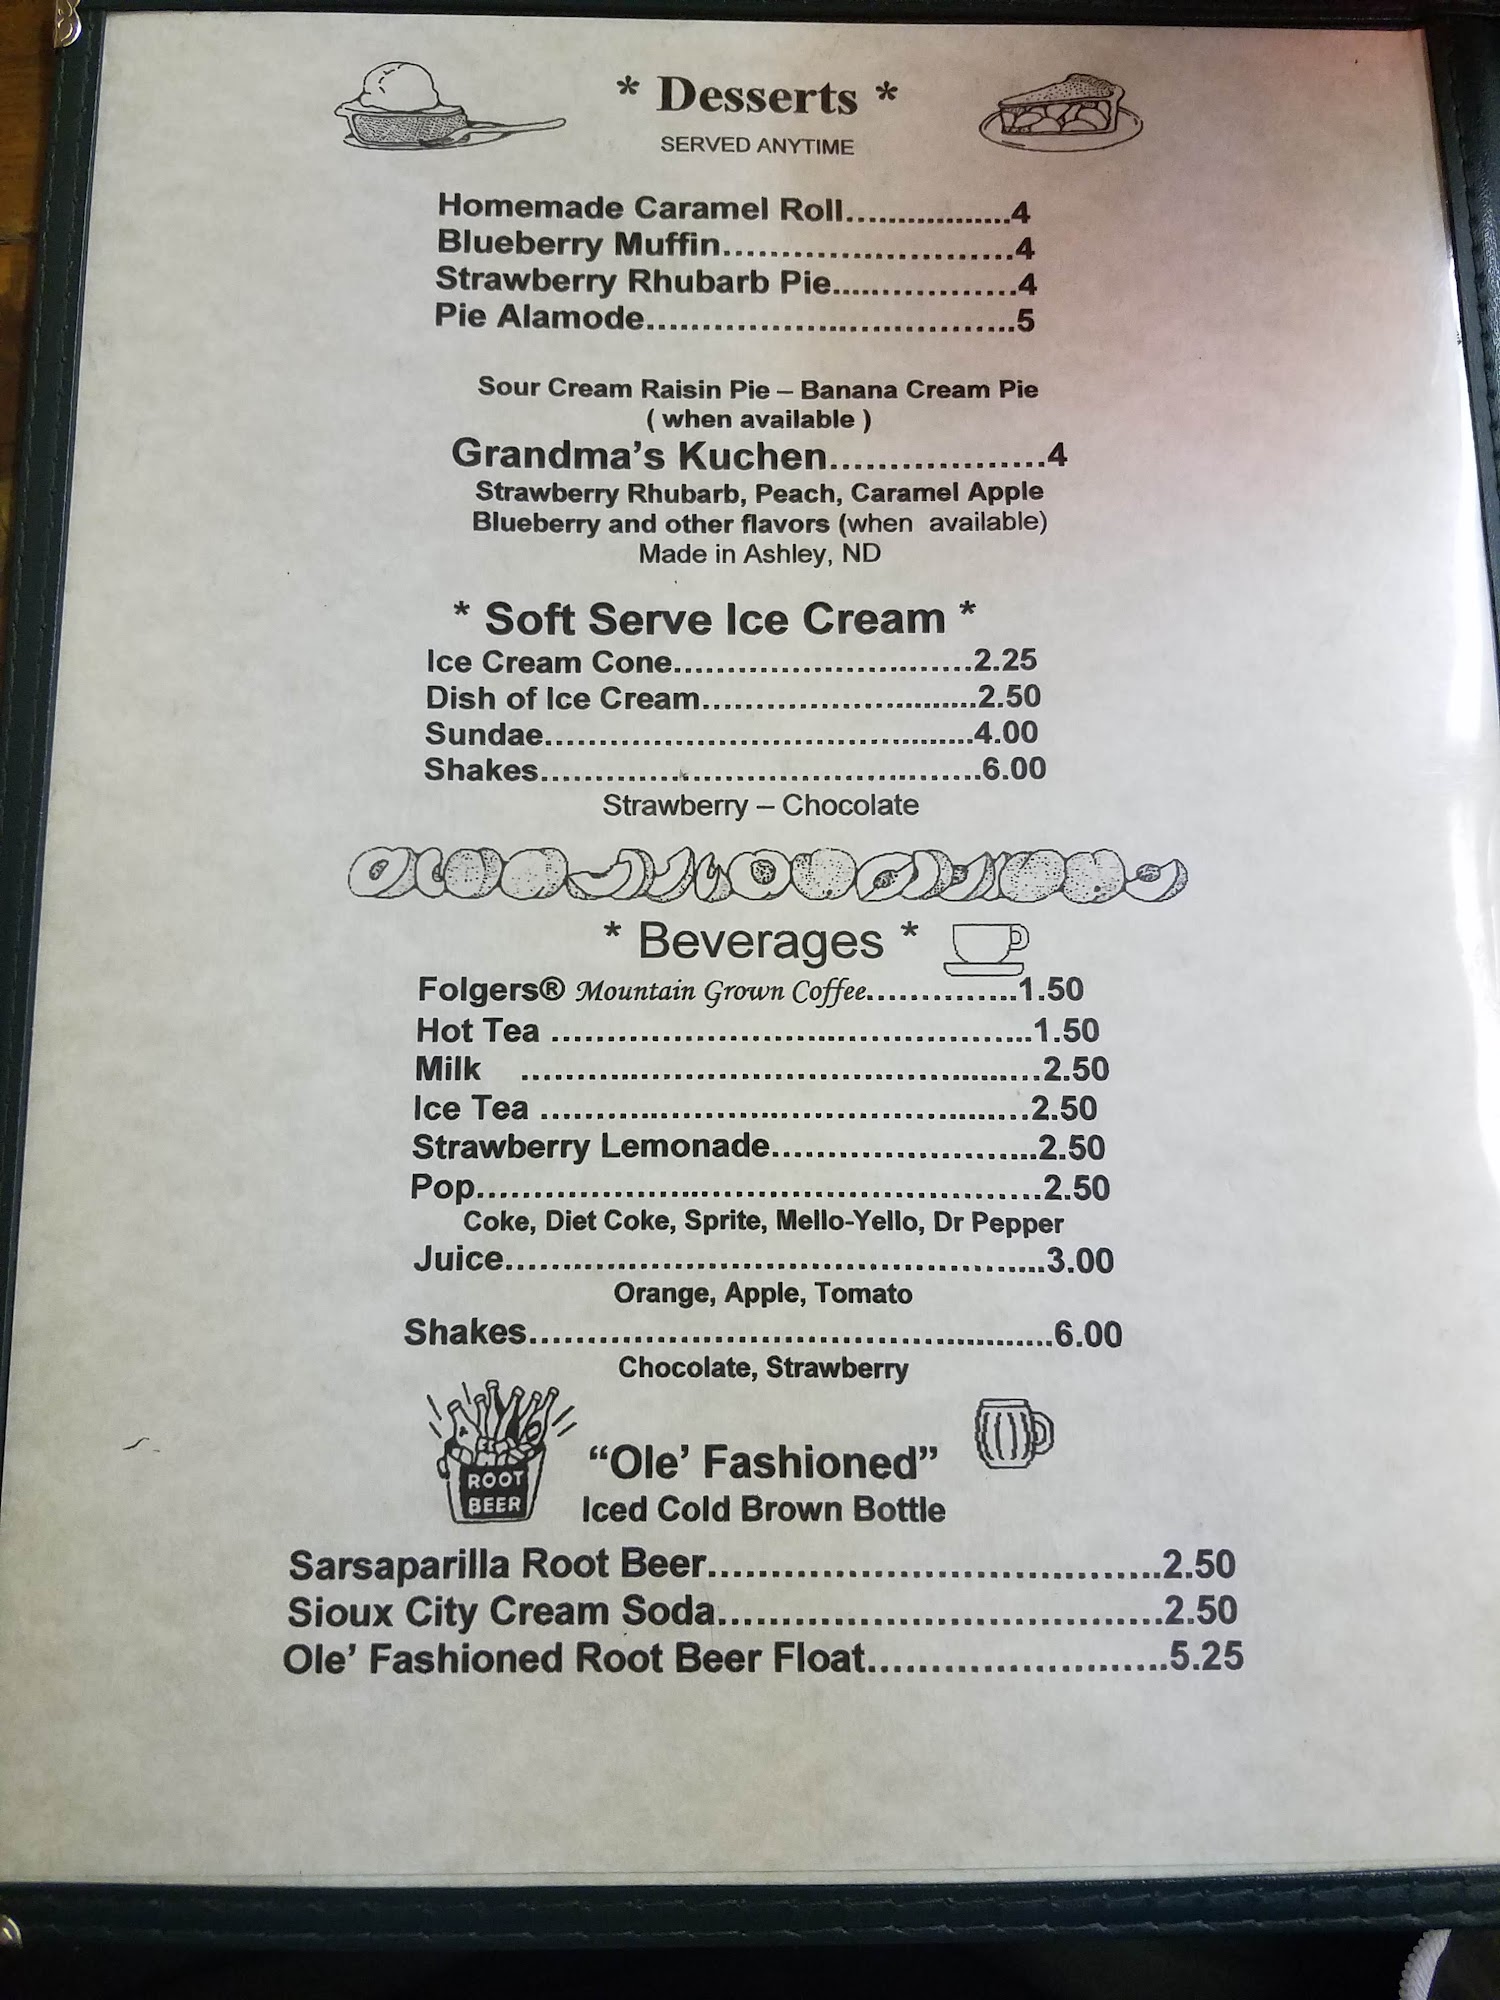 * Desserts *
SERVED ANYTIME
Homemade Caramel Roll..................4
Blueberry Muffin..........................4
Strawberry Rhubarb Pie.................4
Pie Alamode.................................5
Sour Cream Raisin Pie – Banana Cream Pie
( when available )
Grandma's Kuchen...................4
Strawberry Rhubarb, Peach, Caramel Apple
Blueberry and other flavors (when available)
Made in Ashley, ND
* Soft Serve Ice Cream *
Ice Cream Cone...........................2.25
Dish of Ice Cream.........................2.50
Sundae.......................................4.00
Shakes........................................6.00
Strawberry – Chocolate
* Beverages *
Folgers® Mountain Grown Coffee..............1.50
Hot Tea ...........................................1.50
Milk ...............................................2.50
Ice Tea ............................................2.50
Strawberry Lemonade........................2.50
Pop..................................................2.50
Coke, Diet Coke, Sprite, Mello-Yello, Dr Pepper
Juice................................................3.00
Orange, Apple, Tomato
Shakes...............................................6.00
Chocolate, Strawberry
ROOT
BEER
“Ole’ Fashioned”
Iced Cold Brown Bottle
Sarsaparilla Root Beer....................................2.50
Sioux City Cream Soda...................................2.50
Ole’ Fashioned Root Beer Float........................5.25